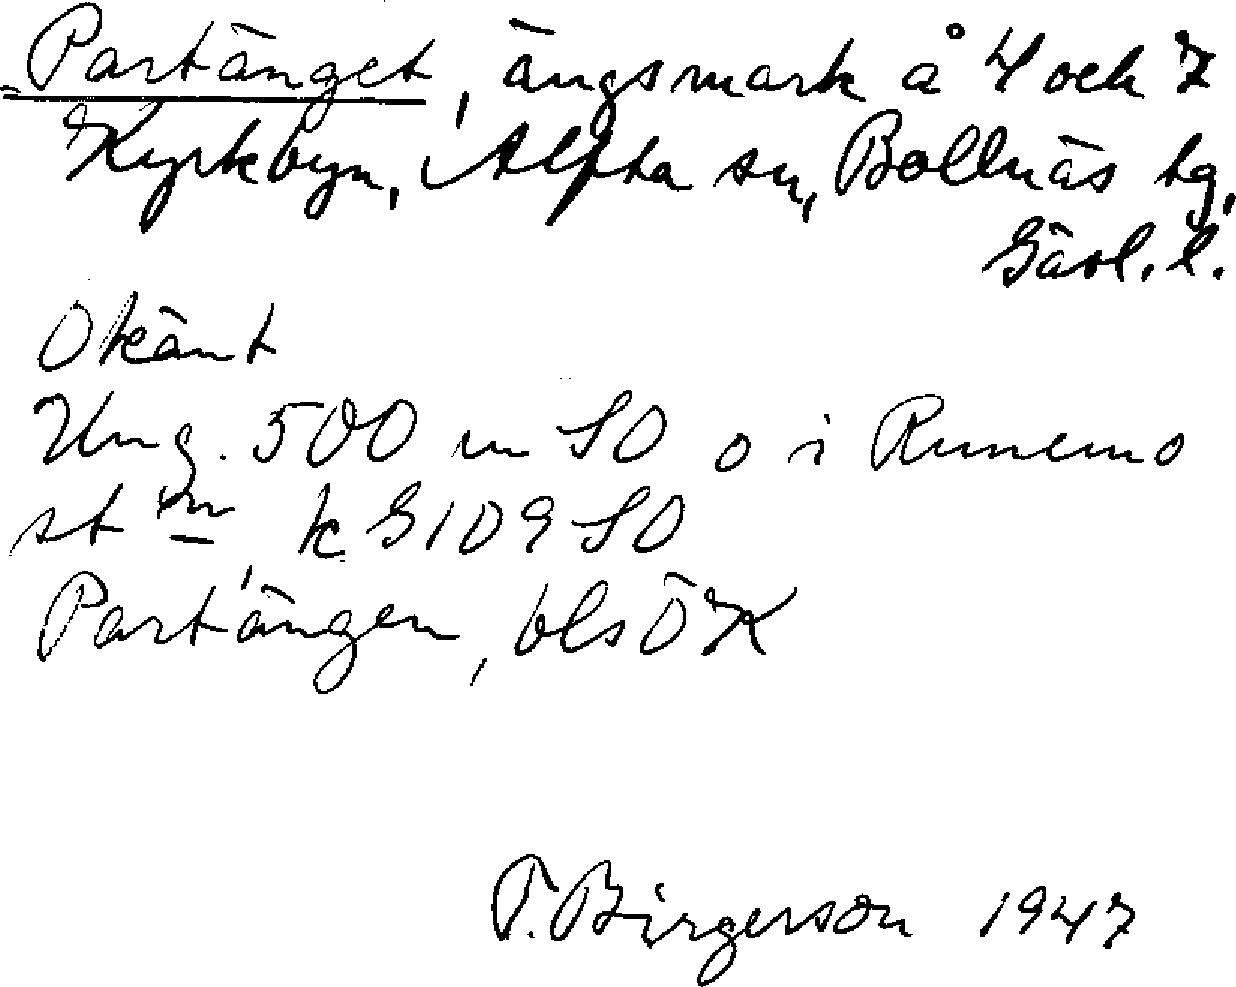 Partänget, ängsmark å 4 och 7
Kyrkbyn, Alfta sn, Bollnäs tg,
Gävl. l.
Okänt
Ung. 500 m SO o i Runemo
stn, k G 109 SO
Partängen, bls ÖK
T. Birgerson 1947